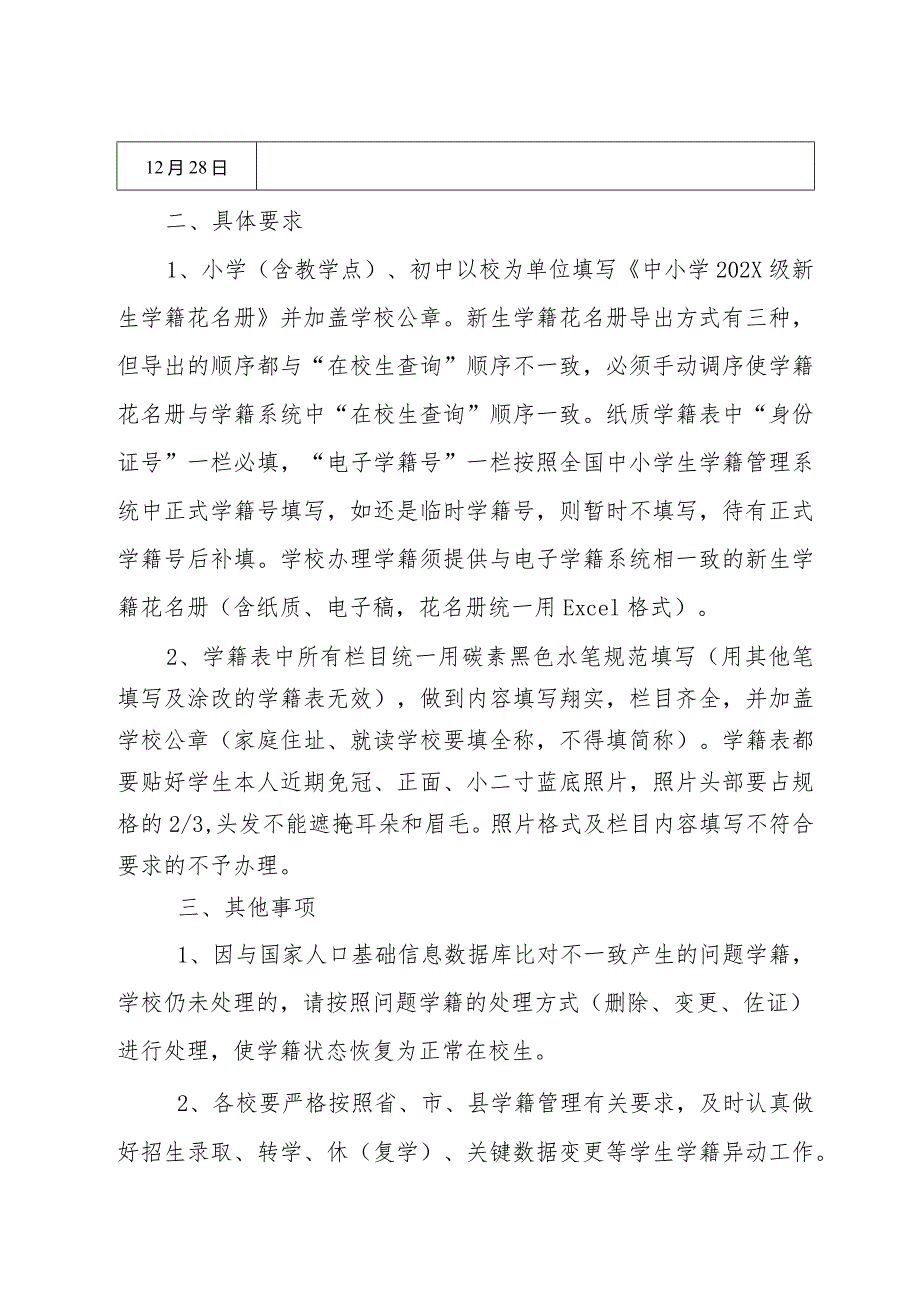 12月28日
二、具体要求
1、小学（含教学点）、初中以校为单位填写《中小学202X级新
生学籍花名册》并加盖学校公章。新生学籍花名册导出方式有三种，
但导出的顺序都与“在校生查询”顺序不一致，必须手动调序使学籍
花名册与学籍系统中“在校生查询”顺序一致。纸质学籍表中“身份
证号”一栏必填，“电子学籍号”一栏按照全国中小学生学籍管理系
统中正式学籍号填写，如还是临时学籍号，则暂时不填写，待有正式
学籍号后补填。学校办理学籍须提供与电子学籍系统相一致的新生学
籍花名册（含纸质、电子稿，花名册统一用Excel格式）。
2、学籍表中所有栏目统一用碳素黑色水笔规范填写（用其他笔
填写及涂改的学籍表无效），做到内容填写翔实，栏目齐全，并加盖
学校公章（家庭住址、就读学校要填全称，不得填简称）。学籍表都
要贴好学生本人近期免冠、正面、小二寸蓝底照片，照片头部要占规
格的2/3,头发不能遮掩耳朵和眉毛。照片格式及栏目内容填写不符合
要求的不予办理。
三、其他事项
1、因与国家人口基础信息数据库比对不一致产生的问题学籍，
学校仍未处理的，请按照问题学籍的处理方式（删除、变更、佐证）
进行处理，使学籍状态恢复为正常在校生。
2、各校要严格按照省、市、县学籍管理有关要求，及时认真做
好招生录取、转学、休（复学）、关键数据变更等学生学籍异动工作。